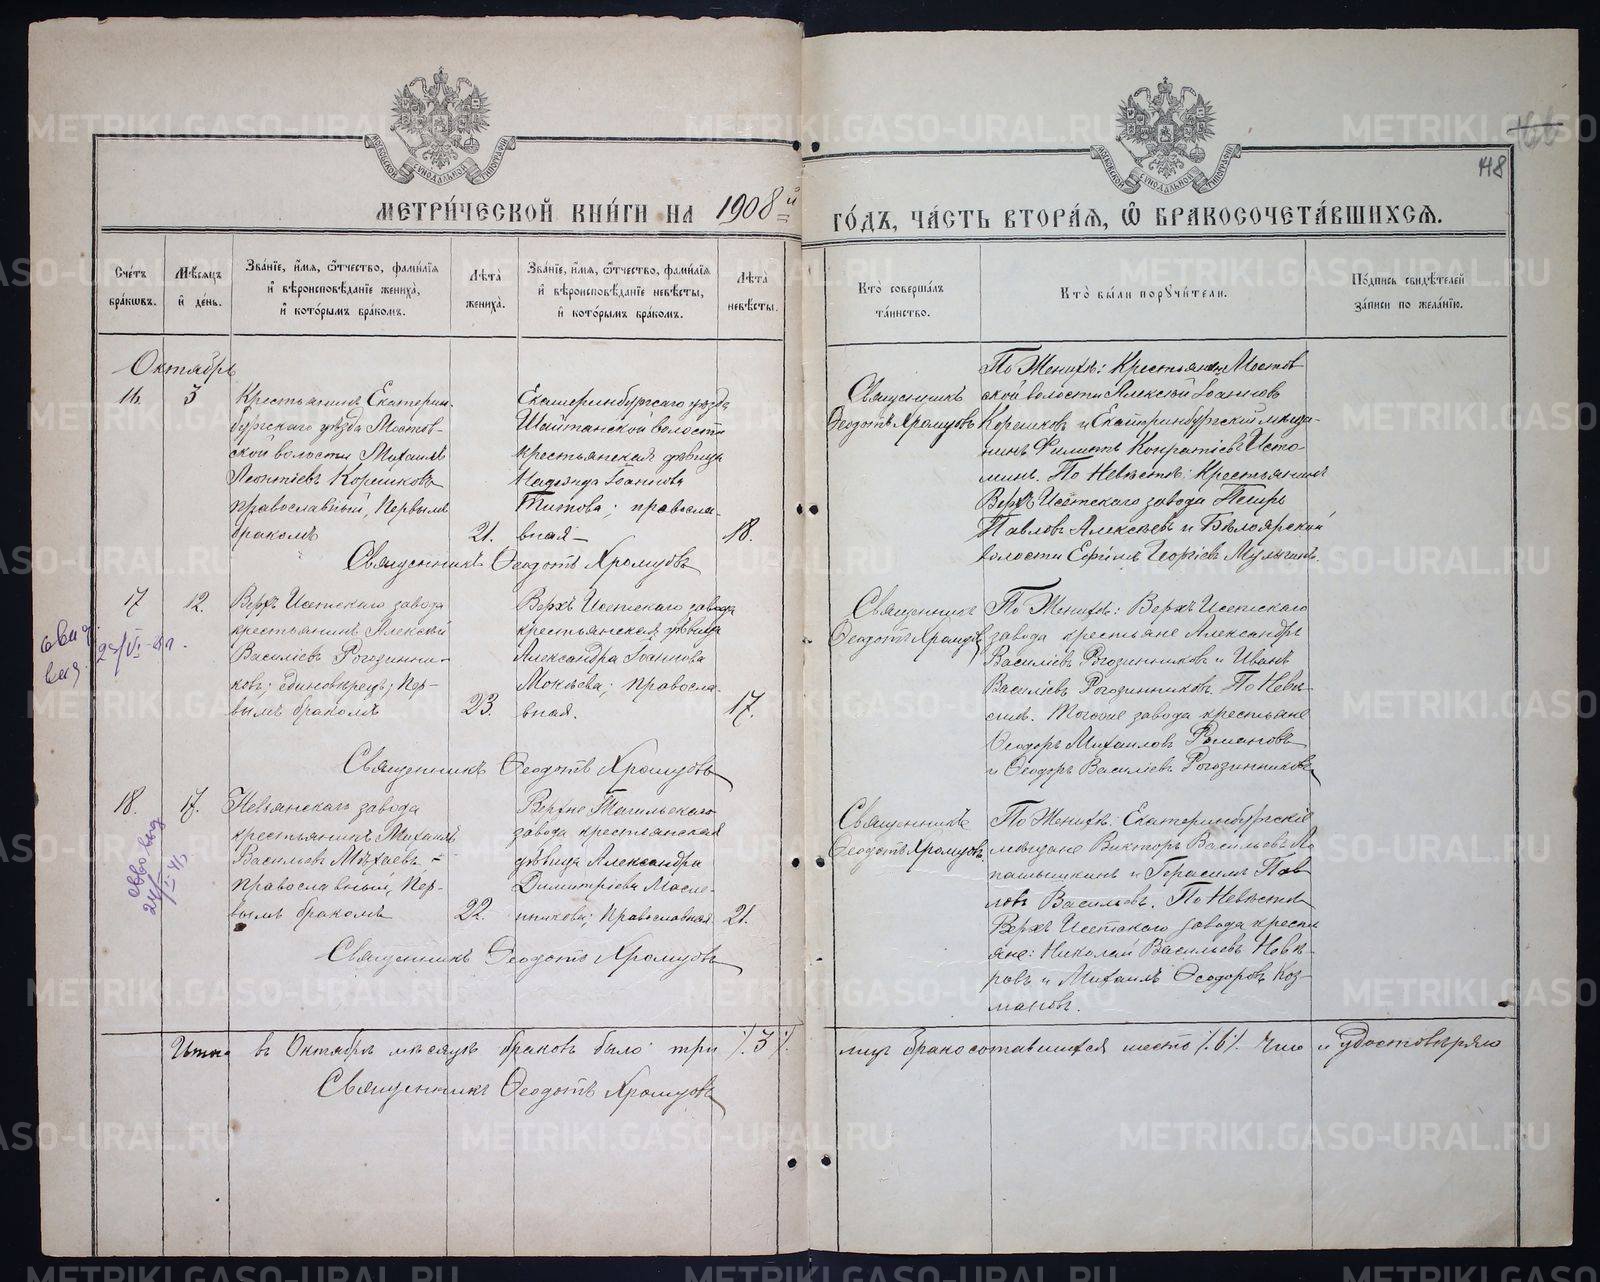 МОСКОВСКОЙ СѴНОДАЛЬНОЙ ТИПОГРАФІИ
МОСКОВСКОЙ СѴНОДАЛЬНОЙ ТИПОГРАФІИ
118
МЕТРИ́ЧЕСКОЙ КНИ́ГИ НА 1908й ГО́ДЪ, ЧА́СТЬ ВТОРА́Я, Ѽ БРАКОСОЧЕТА́ВШИХСЯ.
Сче́тъ бра́кѡвъ.
Мѣ́сяцъ и҆ де́нь.
Зва́нїе, и҆́мя, ѻ҆́тчество, фами́лїя и҆ вѣроисповѣ́данїе жениха̀, и҆ кото́рымъ бра́комъ.
Лѣта̀ жениха̀.
Зва́нїе, и҆́мя, ѻ҆́тчество, фами́лїя и҆ вѣроисповѣ́данїе невѣ́сты, и҆ кото́рымъ бра́комъ.
Лѣта̀ невѣ́сты.
Кто̀ соверша́лъ та́инство.
Кто̀ бы́ли порꙋчи́тели.
По́дпись свидѣ́телей за́писи по жела́нїю.
Октябрь
16. 3
Крестьянинъ Екатерин-
бургскаго уѣзда Мостов-
ской волости Михаилъ
Леонтіевъ Корешковъ
православный, первымъ
бракомъ
21.
Екатеринбургскаго уѣзда
Шайтанской волости
крестьянская дѣвица
Надежда Іоаннова
Титова; правосла-
вная
18.
Священникъ Ѳеодотъ Хромцовъ
Священникъ
Ѳеодотъ Хромцовъ
По Женихѣ: Крестьяне Мостов
ской волости Алексій Іоанновъ
Корешковъ и Екатеринбургскій мѣща-
нинъ Филиппъ Исто-
минъ. По Невѣстѣ: Крестьянинъ
Верхъ Исетскаго завода Петръ
Павловъ Алексѣевъ и Бѣлоярской
волости Ефимъ Георгіевъ Мулыгинъ.
17 12.
Верхъ Исетскаго завода
крестьянинъ Алексій
Василіевъ Рогозинни-
ковъ; единовѣрецъ; пер-
вымъ бракомъ
23.
Верхъ Исетскаго завода
крестьянская дѣвица
Александра Іоаннова
Мокѣева; правосла-
вная.
17.
Священникъ Ѳеодотъ Хромцовъ
Священникъ
Ѳеодотъ Хромцовъ
По Женихѣ: Верхъ Исетскаго
завода крестьяне Александръ
Василіевъ Рогозинниковъ и Иванъ
Василіевъ Рогозинниковъ. По Невѣ-
стѣ: Тогоже завода крестьяне
Ѳеодоръ Михаиловъ Романовъ
и Ѳеодоръ Василіевъ Рогозинниковъ
18. 17.
Невьянскаго завода
крестьянинъ Михаилъ
Васильевъ
православный, пер-
вымъ бракомъ
22.
Верхне Тагильскаго
завода крестьянская
дѣвица Александра
Димитріева Масле-
нникова; православная
21.
Священникъ Ѳеодотъ Хромцовъ
Священникъ
Ѳеодотъ Хромцовъ
По Женихѣ: Екатеринбургскіе
мѣщане Викторъ Васильевъ Ла
патышкинъ и Герасимъ Пав
ловъ Васильевъ. По Невѣстѣ
Верхъ Исетскаго завода кресть
яне: Николай Васильевъ
и Михаилъ Ѳеодоровъ Коз-
мановъ.
Итого въ Октябрѣ мѣсяцѣ браковъ было три /.3/. лицъ бракосочетавшихся шесть /.6/. Что и удостовѣряю
Священникъ Ѳеодотъ Хромцовъ
METRIKI.GASO-URAL.RU